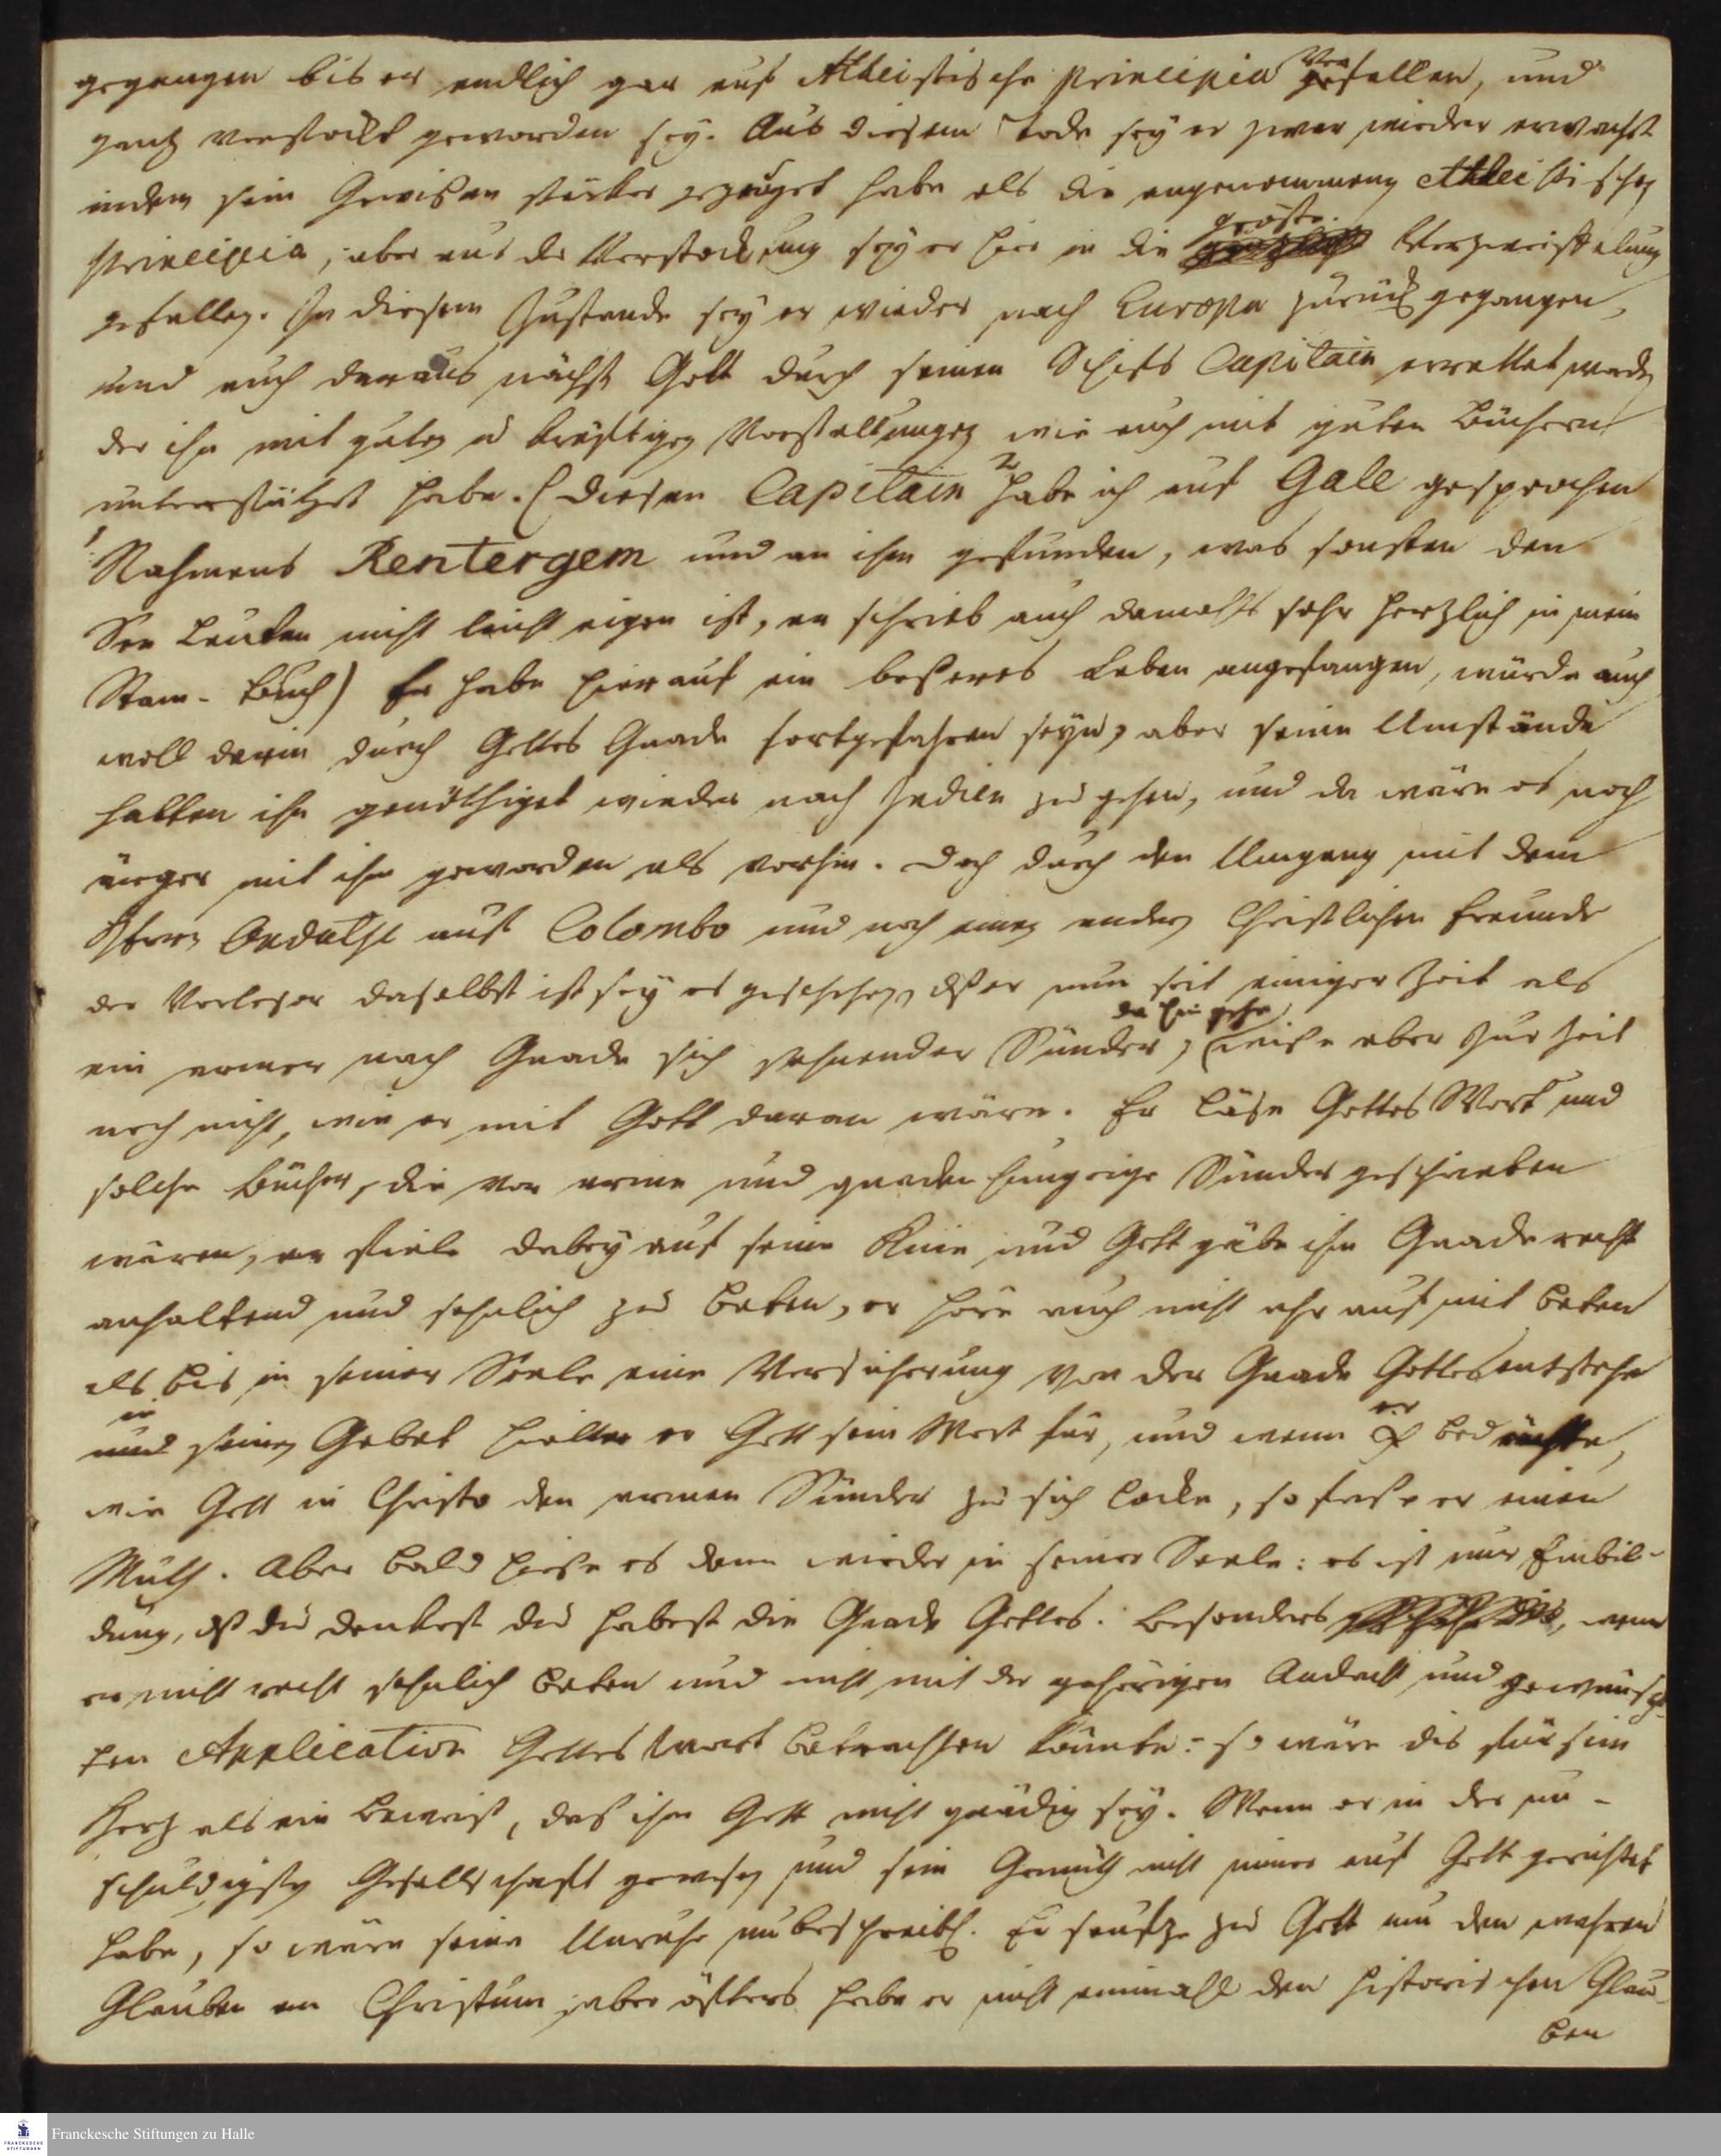 gegangen bis er endlich gar auf Atheistische Principia verfallen, und
gantz verstockt geworden sey. Aus diesem Tode sey er zwar wieder erwacht
indem sein Gewißen stärker gezeuget habe als die angenommenen Atheistischen
Principia, aber aus der Verstockung sey er hier in die gröste Verzweiffelung
gefallen. In diesem Zustande sey er wieder nach Europa zurück gegangen,
und auch daraus nächst Gott durch seinen Schifs Capitain errettet worden
der ihn mit guten u kräftigen Vorstellungen wie auch mit guten Büchern
unterstützet habe. (diesen Capitain 2 habe ich auf Gale gesprochen
1 Nahmens Rentergem und an ihm gefunden, was sonsten den
See Leuten nicht leicht eigen ist, er schrieb auch damahls sehr hertzlich in mein
Stam-Buch) Er habe hierauf ein beßeres Leben angefangen, würde auch
woll darin durch Gottes Gnade fortgefahren seyn, aber seine Umstände
hatten ihn genöthiget wieder nach Indien zu gehen, und da wäre es noch
ärger mit ihm geworden als vorhin. Doch durch den Umgang mit dem
Herrn auf Colombo und noch einen andern Christlichen Freunde
der Vorleser daselbst ist sey es geschehen, dß er nun seit einiger Zeit als
ein armer nach Gnade sich sehnender Sünder, da hin gehe, wiße aber zur Zeit
noch nicht, wie er mit Gott daran wäre. Er läse Gottes Wort und
solche Bücher, die vor arme und gnadenhungrige Sünder geschrieben
wären, er fiele dabey auf seine Knie und Gott gäbe ihm Gnade recht
anhaltend und sehnlich zu beten, er höre auch nicht ehr auf mit beten
als bis in seiner Seele eine Versicherung von der Gnade Gottes entstehe
in seinen Gebet hielte er Gott sein Wort für, und wenn er bedächte,
wie Gott in Christo den armen Sünder zu sich locke, so faße er einen
Muth. Aber bald hieße es dann wieder in seiner Seele: es ist nur Einbil-
dung, dß du denkest du habest die Gnade Gottes. Besonders, wenn
er nicht recht sehnlich beten und nicht mit der gehörigen Andacht und gewünsch-
ten Application Gottes Wort betrachten könnte: so wäre dis für sein
Hertz als ein Beweiß, daß ihm Gott nicht gnädig sey. Wenn er in der un-
schuldigsten Gesellschaft gewesen und sein Gemüth nicht immer auf Gott gerichtet
habe, so wäre seine Unruhe unbeschreibl. Er seufze zu Gott um den wahren
Glauben an Christum, aber öfters habe er nicht einmahl den historischen Glau-
ben
Franckesche Stiftungen zu Halle